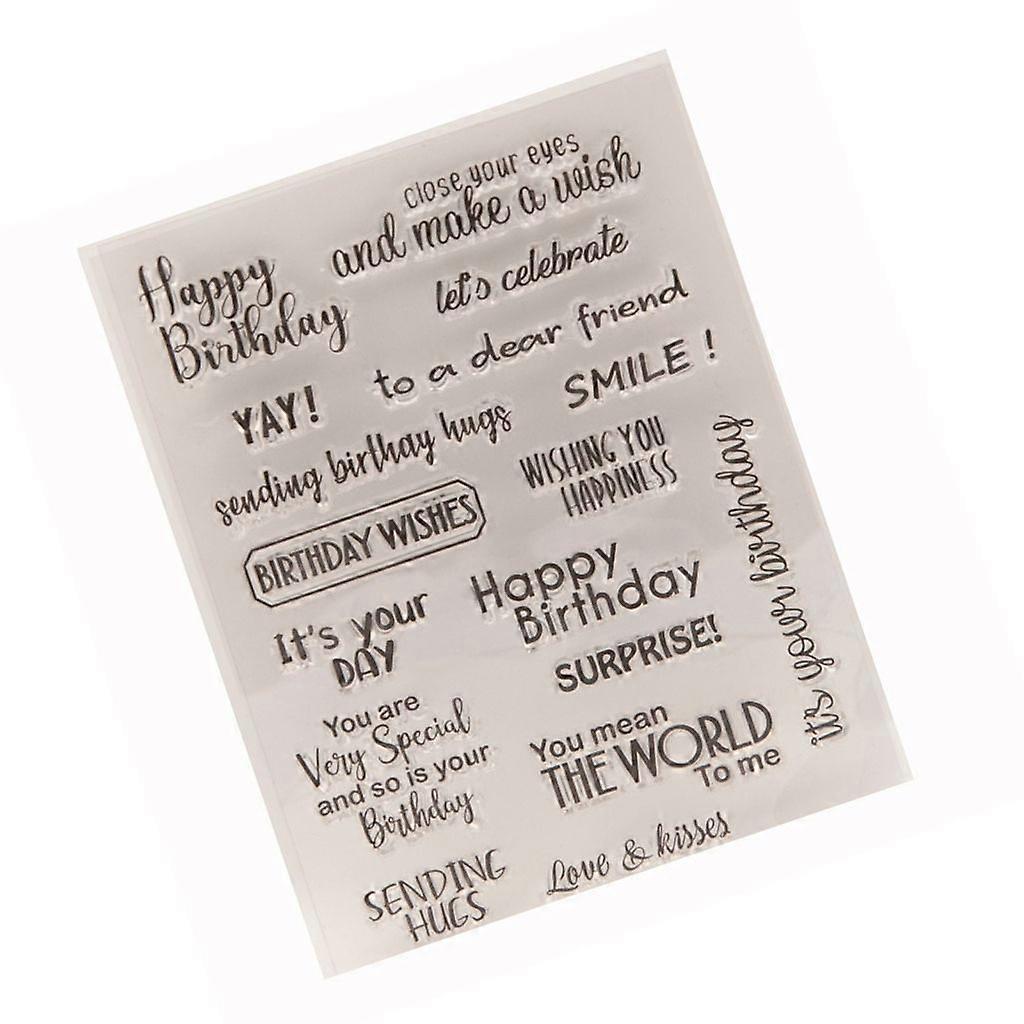 close your eyes
and make a wish
Happy
Birthday
let's celebrate
to a dear friend
YAY!
SMILE !
sending birthay hugs
WISHING YOU
HAPPINESS
it's your birthday
BIRTHDAY WISHES
Happy
Birthday
It's your
DAY
SURPRISE!
You are
Very Special
and so is your
Birthday
You mean
THE WORLD
To me
SENDING
HUGS
Love & kisses